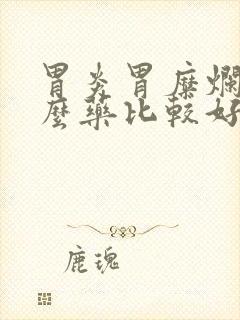 胃炎胃糜爛
麼藥比較好
鹿瑰